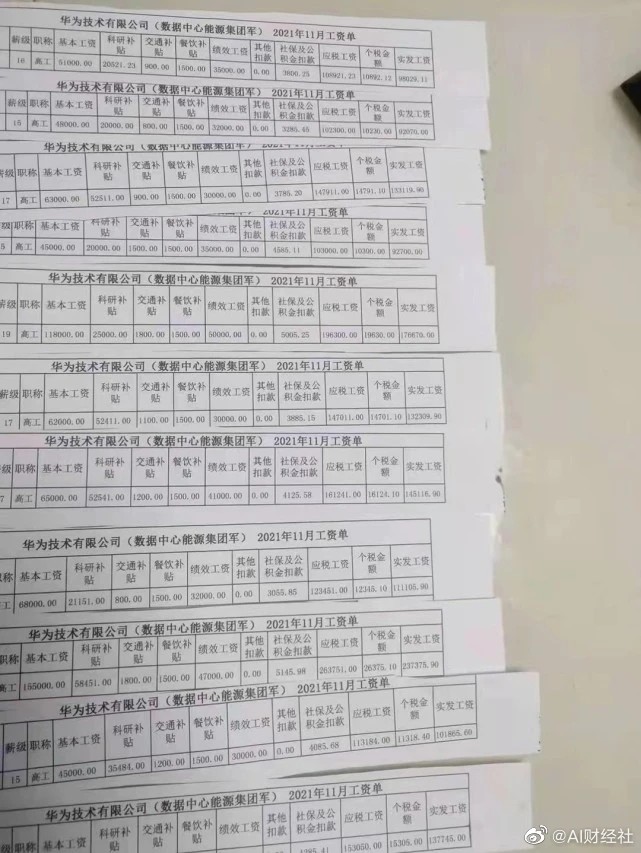 华为技术有限公司（数据中心能源集团军） 2021年11月工资单
薪级 职称 基本工资 科研补贴 交通补贴 餐饮补贴 绩效工资 其他扣款 社保及公积金扣款 应税工资 个税金额 实发工资
16 高工 51000.00 20521.23 900.00 1500.00 35000.00 0.00 3600.25 108921.23 10892.12 98029.11
华为技术有限公司（数据中心能源集团军） 2021年11月工资单
薪级 职称 基本工资 科研补贴 交通补贴 餐饮补贴 绩效工资 其他扣款 社保及公积金扣款 应税工资 个税金额 实发工资
15 高工 48000.00 20000.00 800.00 1500.00 32000.00 0.00 3285.45 102300.00 10230.00 92070.00
薪级 职称 基本工资 科研补贴 交通补贴 餐饮补贴 绩效工资 其他扣款 社保及公积金扣款 应税工资 个税金额 实发工资
17 高工 63000.00 52511.00 900.00 1500.00 30000.00 0.00 3785.20 147911.00 14791.10 133119.90
2021年11月工资单
薪级 职称 基本工资 科研补贴 交通补贴 餐饮补贴 绩效工资 其他扣款 社保及公积金扣款 应税工资 个税金额 实发工资
5 高工 45000.00 20000.00 1500.00 1500.00 35000.00 0.00 4585.11 103000.00 10300.00 92700.00
华为技术有限公司（数据中心能源集团军） 2021年11月工资单
薪级 职称 基本工资 科研补贴 交通补贴 餐饮补贴 绩效工资 其他扣款 社保及公积金扣款 应税工资 个税金额 实发工资
19 高工 118000.00 25000.00 1800.00 1500.00 50000.00 0.00 5065.25 196300.00 19630.00 176670.00
华为技术有限公司（数据中心能源集团军） 2021年11月工资单
薪级 职称 基本工资 科研补贴 交通补贴 餐饮补贴 绩效工资 其他扣款 社保及公积金扣款 应税工资 个税金额 实发工资
17 高工 62000.00 52411.00 1100.00 1500.00 30000.00 0.00 3885.15 147011.00 14701.10 132309.90
华为技术有限公司（数据中心能源集团军） 2021年11月工资单
级 职称 基本工资 科研补贴 交通补贴 餐饮补贴 绩效工资 其他扣款 社保及公积金扣款 应税工资 个税金额 实发工资
7 高工 65000.00 52541.00 1200.00 1500.00 41000.00 0.00 4125.58 161241.00 16124.10 145116.90
华为技术有限公司（数据中心能源集团军） 2021年11月工资单
职称 基本工资 科研补贴 交通补贴 餐饮补贴 绩效工资 其他扣款 社保及公积金扣款 应税工资 个税金额 实发工资
工 68000.00 21151.00 800.00 1500.00 32000.00 0.00 3055.85 123451.00 12345.10 111105.90
华为技术有限公司（数据中心能源集团军） 2021年11月工资单
职称 基本工资 科研补贴 交通补贴 餐饮补贴 绩效工资 其他扣款 社保及公积金扣款 应税工资 个税金额 实发工资
高工 155000.00 58451.00 1800.00 1500.00 47000.00 0.00 5145.98 263751.00 26375.10 237375.90
华为技术有限公司（数据中心能源集团军） 2021年11月工资单
薪级 职称 基本工资 科研补贴 交通补贴 餐饮补贴 绩效工资 其他扣款 社保及公积金扣款 应税工资 个税金额 实发工资
15 高工 45000.00 35484.00 1200.00 1500.00 30000.00 0.00 4085.68 113184.00 11318.40 101865.60
华为技术有限公司（数据中心能源集团军） 2021年11月工资单
职称 基本工资 科研补贴 交通补贴 餐饮补贴 绩效工资 其他扣款 社保及公积金扣款 应税工资 个税金额 实发工资
153050.00 15305.00 137745.00
@AI财经社